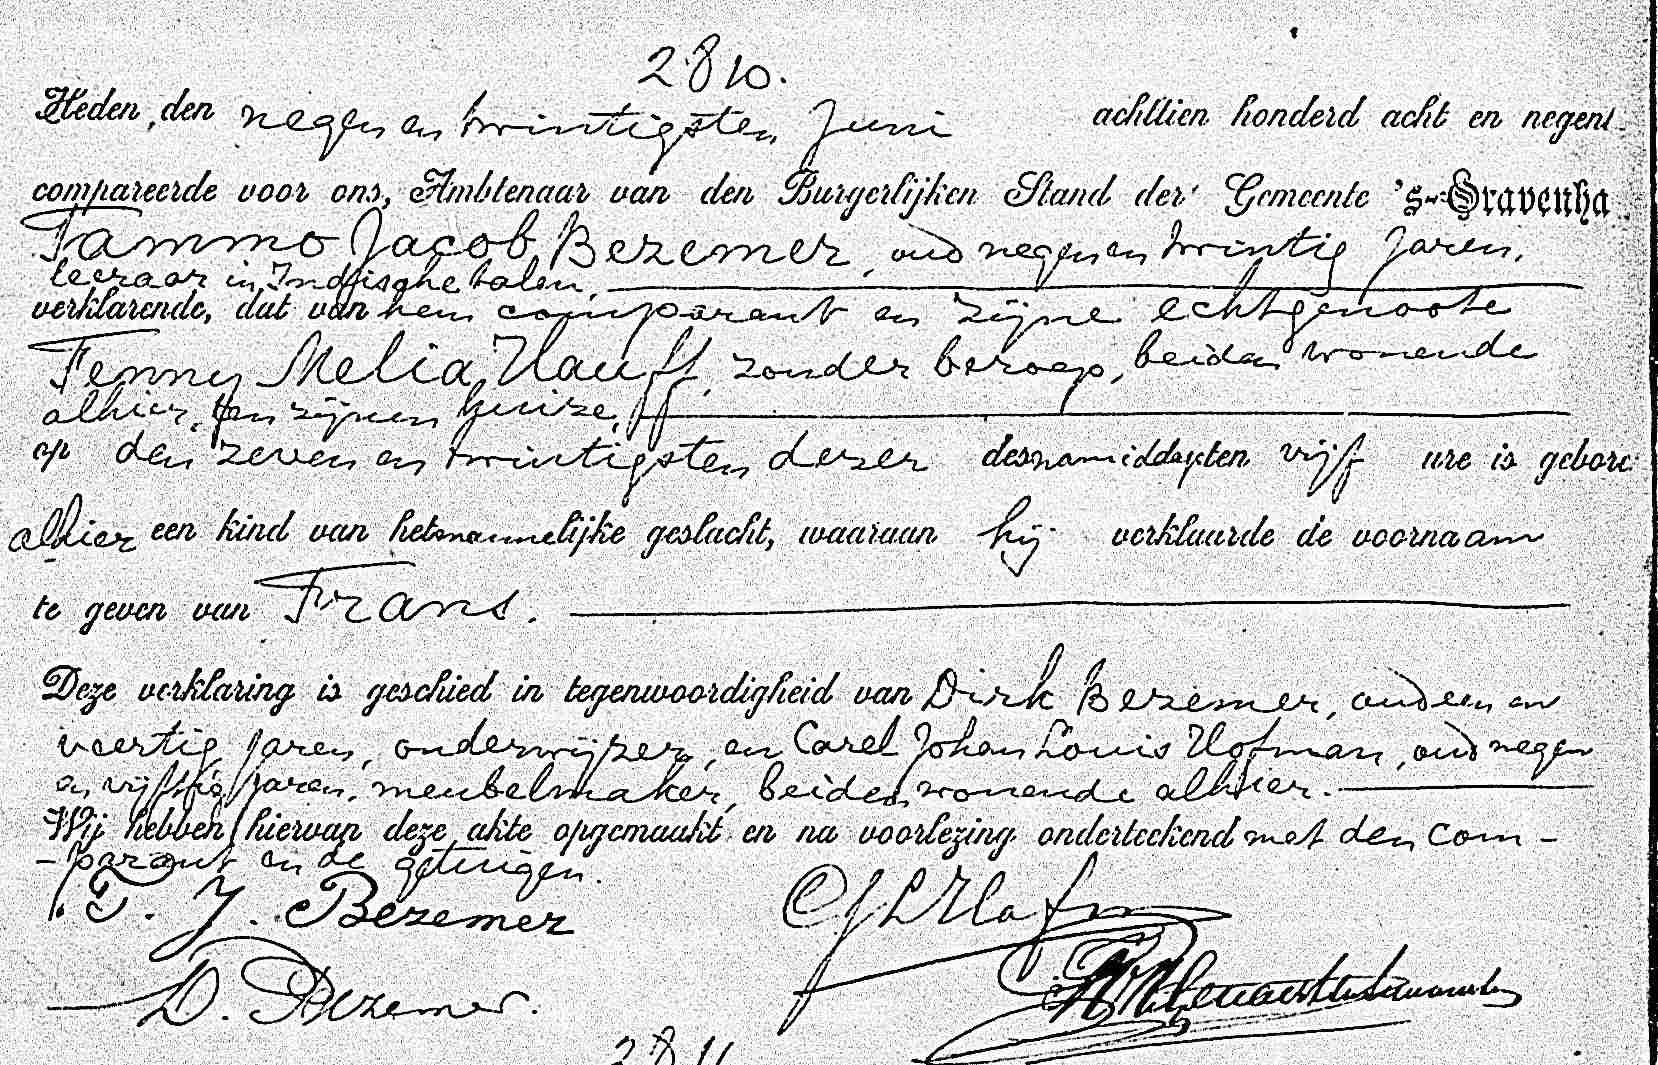 2810.
Heden, den negen en twintigsten Juni achttien honderd acht en negent
compareerde voor ons, Ambtenaar van den Burgerlijken Stand der Gemeente 's-Gravenha
Tammo Jacob Bezemer, oud negen en twintig jaren,
leeraar in Indische talen,
verklarende, dat van hem comparant en zijne echtgenoote
Fenny Melia Hauff, zonder beroep, beiden wonende
alhier, ten zijnen huize,
op den zeven en twintigsten dezer des namiddagten vijf ure is gebore
alhier een kind van het mannelijke geslacht, waaraan hij verklaarde de voornaam
te geven van Frans.
Deze verklaring is geschied in tegenwoordigheid van Dirk Bezemer, oud een en
veertig jaren, onderwijzer, en Carel Johan Louis Hofman, oud negen
en vijftig jaren, meubelmaker, beiden wonende alhier.
Wij hebben hiervan deze akte opgemaakt en na voorlezing onderteekend met den com-
-parant en de getuigen.
T. J. Bezemer CJLHofm
D. Bezemer.
2811